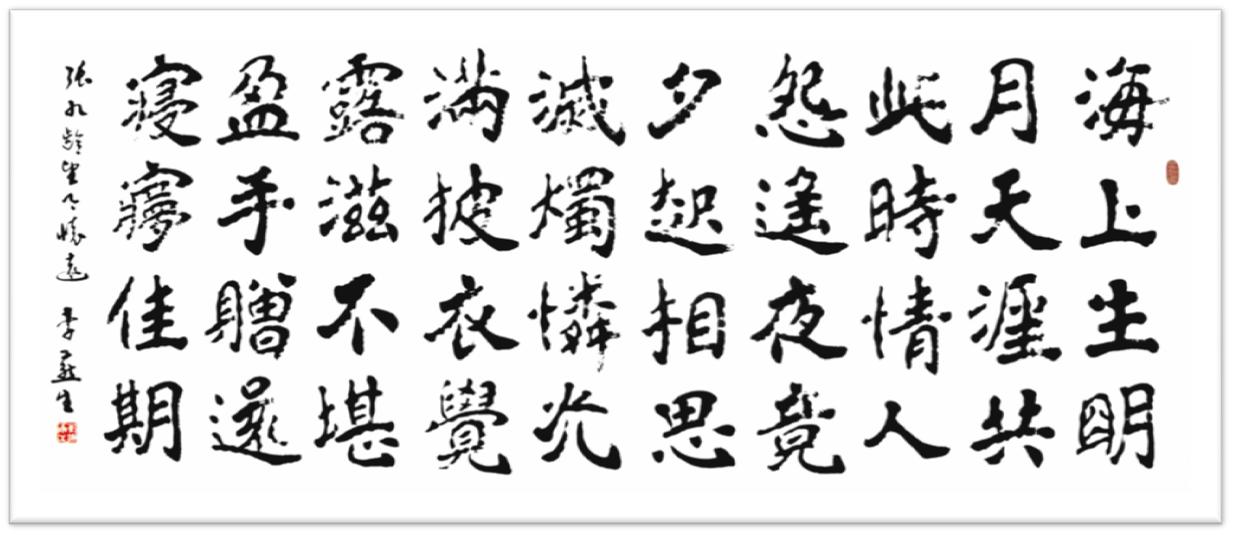 海上生明
月天涯共
此時情人
怨遙夜竟
夕起相思
滅燭憐光
滿披衣覺
露滋不堪
盈手贈還
寢㝱佳期
張九齡望月懷遠 李燕生